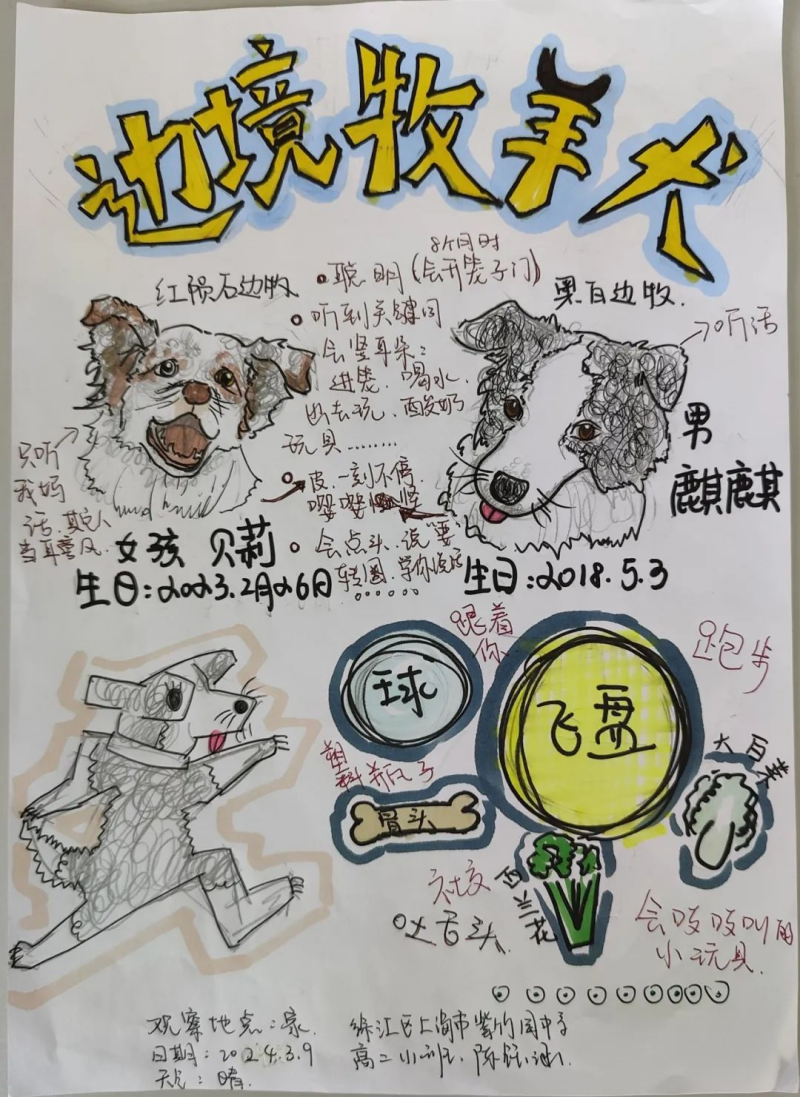 边境牧羊犬
红陨石边牧
聪明(会开笼子门)
8个月时
黑白边牧.
听到关键词
会竖耳朵:
进笼.喝水.
出去玩.酸奶
玩具........
→听话
只听
我妈
话.其它人
当耳旁风.
皮.一刻不停.
嘤嘤
会点头.说"要"
转圈.学你说话
......
女孩 贝莉
生日:2023.2月26日
男
麒麒
生日:2018.5.3
球
跟着
你
飞盘
跑步
塑料瓶子
骨头
大白菜
西兰花
社交
吐舌头.
会吱吱叫的
小玩具.
观察地点:家.
日期:2024.3.9
天气:晴.
徐汇区上海市紫竹园中学
高二小班.